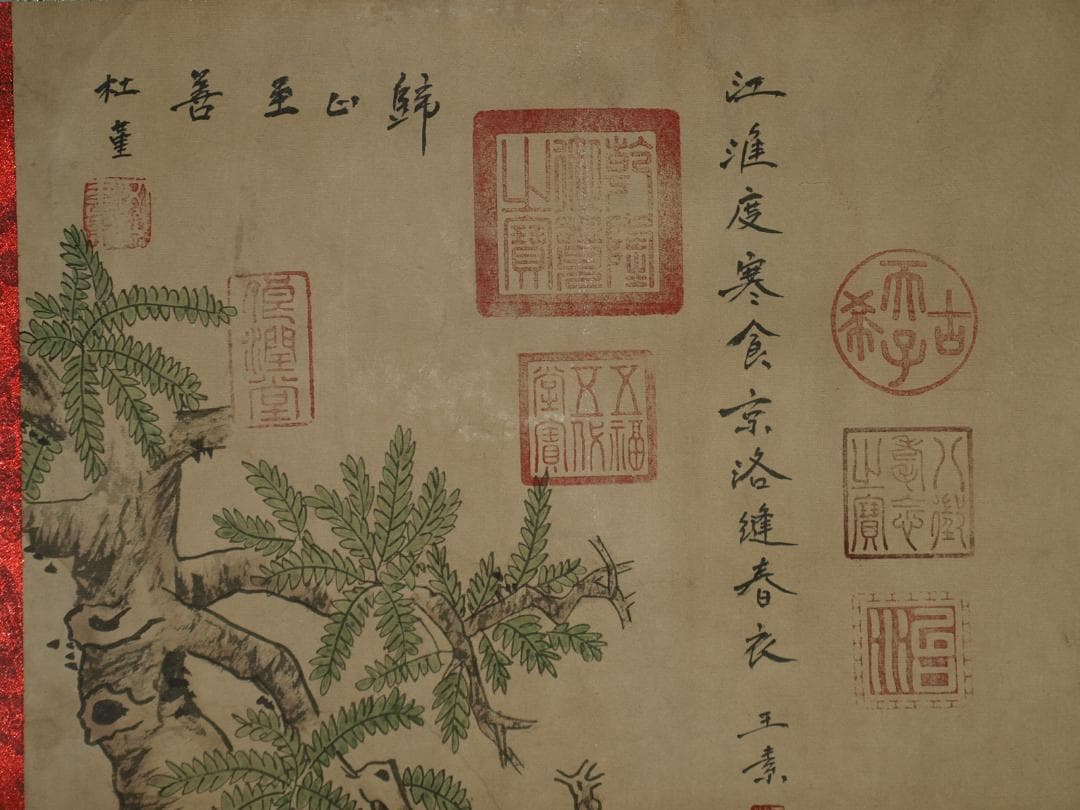 古希天子
八徵耄念之寶
江淮度寒食京洛縫春衣
王素
乾隆御覽之寶
五福五代堂寶
歸止至善
杜堇